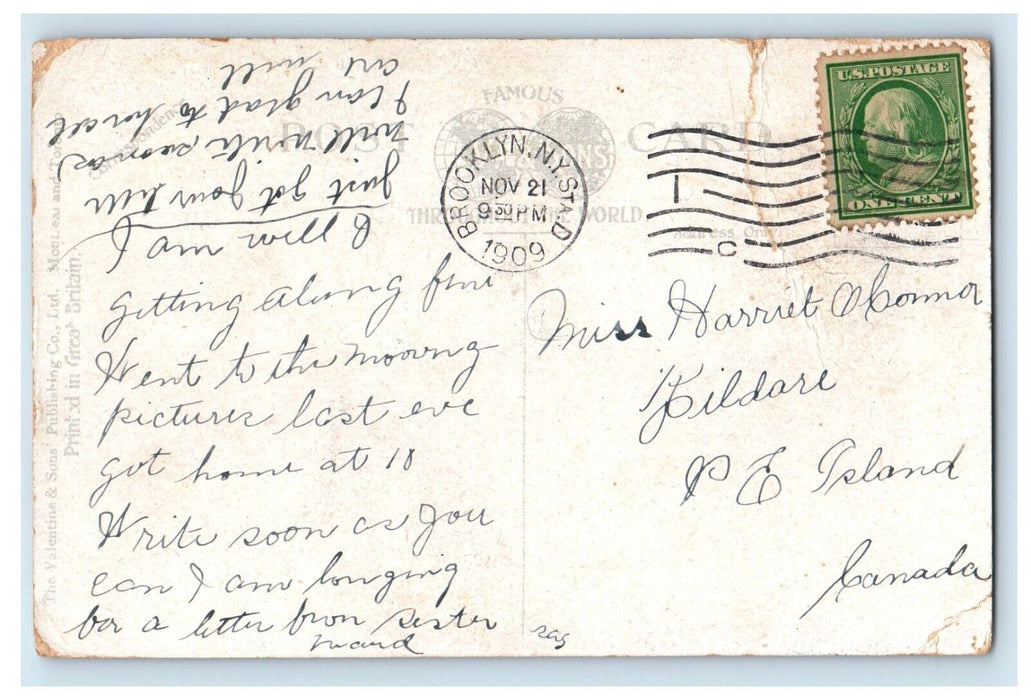 FAMOUS
POST CARD
THROUGHOUT THE WORLD
BROOKLYN, N.Y. STA D
NOV 21
9 30 PM
1909
1
C
U.S. POSTAGE
ONE CENT
Correspondence
Address Only
The Valentine & Sons Publishing Co., Ltd. Montreal and
Printed in Great Britain.
I am well
getting along fine
Went to the mooving
pictures last eve
got home at 10
Write soon as you
can I am longing
for a letter from sister
Maud
Just got your
will write soon as
I can glad to
are well
Miss Harriet O'Connor
Kildare
P E Island
Canada